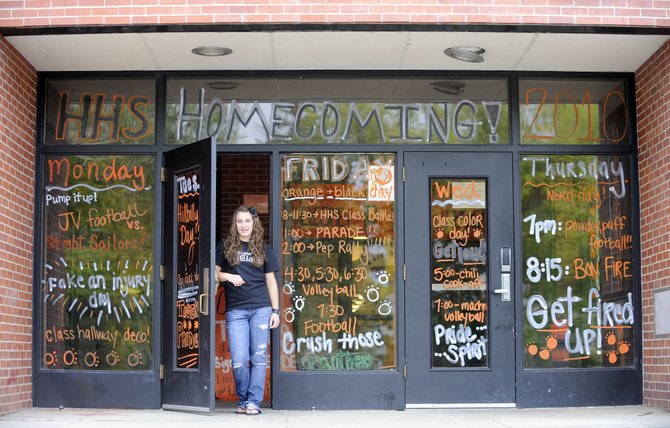 HHS
Homecoming!
2010
Monday
Pump it up!
JV football
vs.
Stmbt Sailors!
Fake an injury
day
Class hallway deco!
Tues.
Hillbilly
Day!
FRIDAY
orange + black day
8-11:30 → HHS Class Battles!
1:00 → PARADE!!
2:00 → Pep Rally
4:30, 5:30, 6:30
Volleyball
7:30
Football
Crush those
Wed.
Class color
day!
Get loud!
5:00-chili
cook-off
7:00- macho
volleyball
Pride...
...Spirit
Thursday
Nerd day!
7pm: Powderpuff
football!!
8:15: Bon FIRE
Get fired
UP!